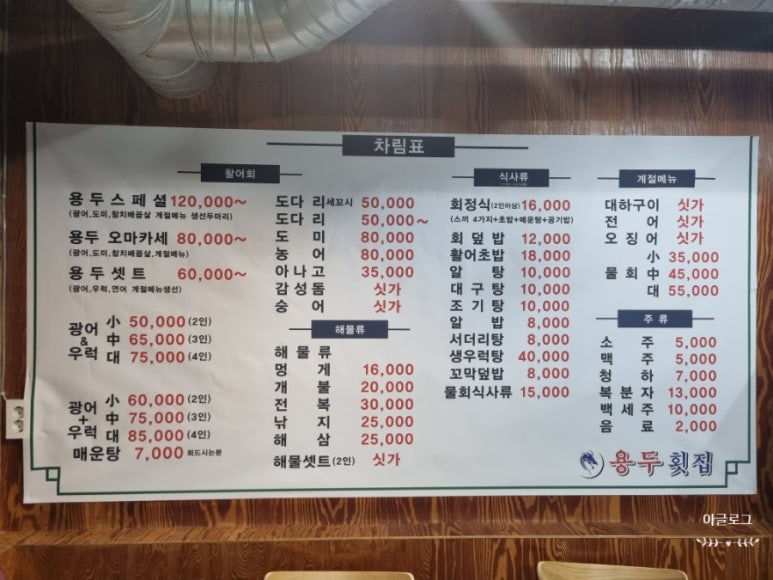 차림표
활어회
용두스페셜 120,000~
(광어,도미,참치배꼽살 계절메뉴 생선두마리)
용두 오마카세 80,000~
(광어,도미,참치배꼽살,계절메뉴)
용두셋트 60,000~
(광어,우럭,연어 계절메뉴생선)
광어 & 우럭
小 50,000 (2인)
中 65,000 (3인)
대 75,000 (4인)
광어 + 우럭
小 60,000 (2인)
中 75,000 (3인)
대 85,000 (4인)
매운탕 7,000 회드시는분
도다리 세꼬시 50,000
도다리 50,000~
도미 80,000
농어 80,000
아나고 35,000
감성돔 싯가
숭어 싯가
해물류
해물류
멍게 16,000
개불 20,000
전복 30,000
낚지 25,000
해삼 25,000
해물셋트 (2인) 싯가
식사류
회정식 (2인이상) 16,000
(스끼 4가지+초밥+매운탕+공기밥)
회덮밥 12,000
활어초밥 18,000
알탕 10,000
대구탕 10,000
조기탕 10,000
알밥 8,000
서더리탕 8,000
생우럭탕 40,000
꼬막덮밥 8,000
물회식사류 15,000
계절메뉴
대하구이 싯가
전어 싯가
오징어 싯가
물회
小 35,000
中 45,000
대 55,000
주류
소주 5,000
맥주 5,000
청하 7,000
복분자 13,000
백세주 10,000
음료 2,000
용두횟집
아글로그